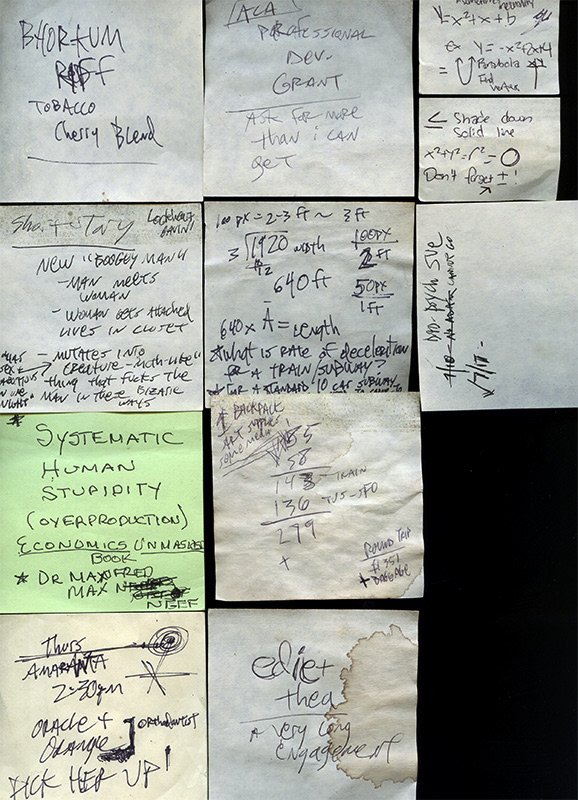 BHORTUM
RIFF
TOBACCO
Cherry Blend
ACA
PROFESSIONAL
DEV-
GRANT
Ask for more
than i can
get
Y=x²+x+9
Ex Y=-x²+2x+4
= U Parabola
Find
vertex
≤ Shade down
Solid line
x²+y²-r²=O
Don't forget ± !
Short Story
NEW "BOOGEY MAN"
-MAN MEETS
WOMAN
-WOMAN GETS ATTACHED
LIVES IN CLOSET
-MUTATES INTO
CREATURE-MOTH-LIKE
THING THAT FUCKS THE
MAN IN THESE BIZATIC
WAYS
100 PX = 2-3 ft ~ 3 ft
3 1920 width
640 ft
100PX
2 FT
50PX
1 ft
640 x A = Length
*What is RATE of deceleration
for A TRAIN SUBWAY?
* FOR A STANDARD 10 CAR SUBWAY
DAD-PSYCH SVC
*
SYSTEMATIC
HUMAN
STUPIDITY
(OVERPRODUCTION)
ECONOMICS UNMASKED
BOOK
* DR MANFRED
MAX
NEEF
* BACKPACK
ART SUPPLIES
some media!
58
143 TRAIN
136 TUS-SFO
299
+
ROUND TRIP
$1351
+ BAGGAGE
Thurs
AMARANTA
2:30pm
ORACLE +
Orange
ORTHODONTIST
PICK HER UP!
edie+
thea
A very long
Engagement